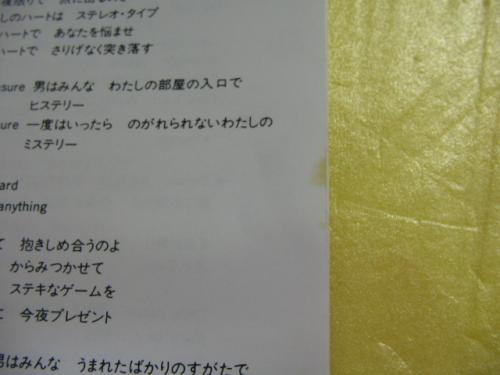 しのハートは ステレオ・タイプ
ハートで あなたを悩ませ
ハートで さりげなく突き落す
sure 男はみんな わたしの部屋の入口で
ヒステリー
ure 一度はいったら のがれられないわたしの
ミステリー
ard
anything
て 抱きしめ合うのよ
からみつかせて
ステキなゲームを
に 今夜プレゼント
男はみんな うまれたばかりのすがたで